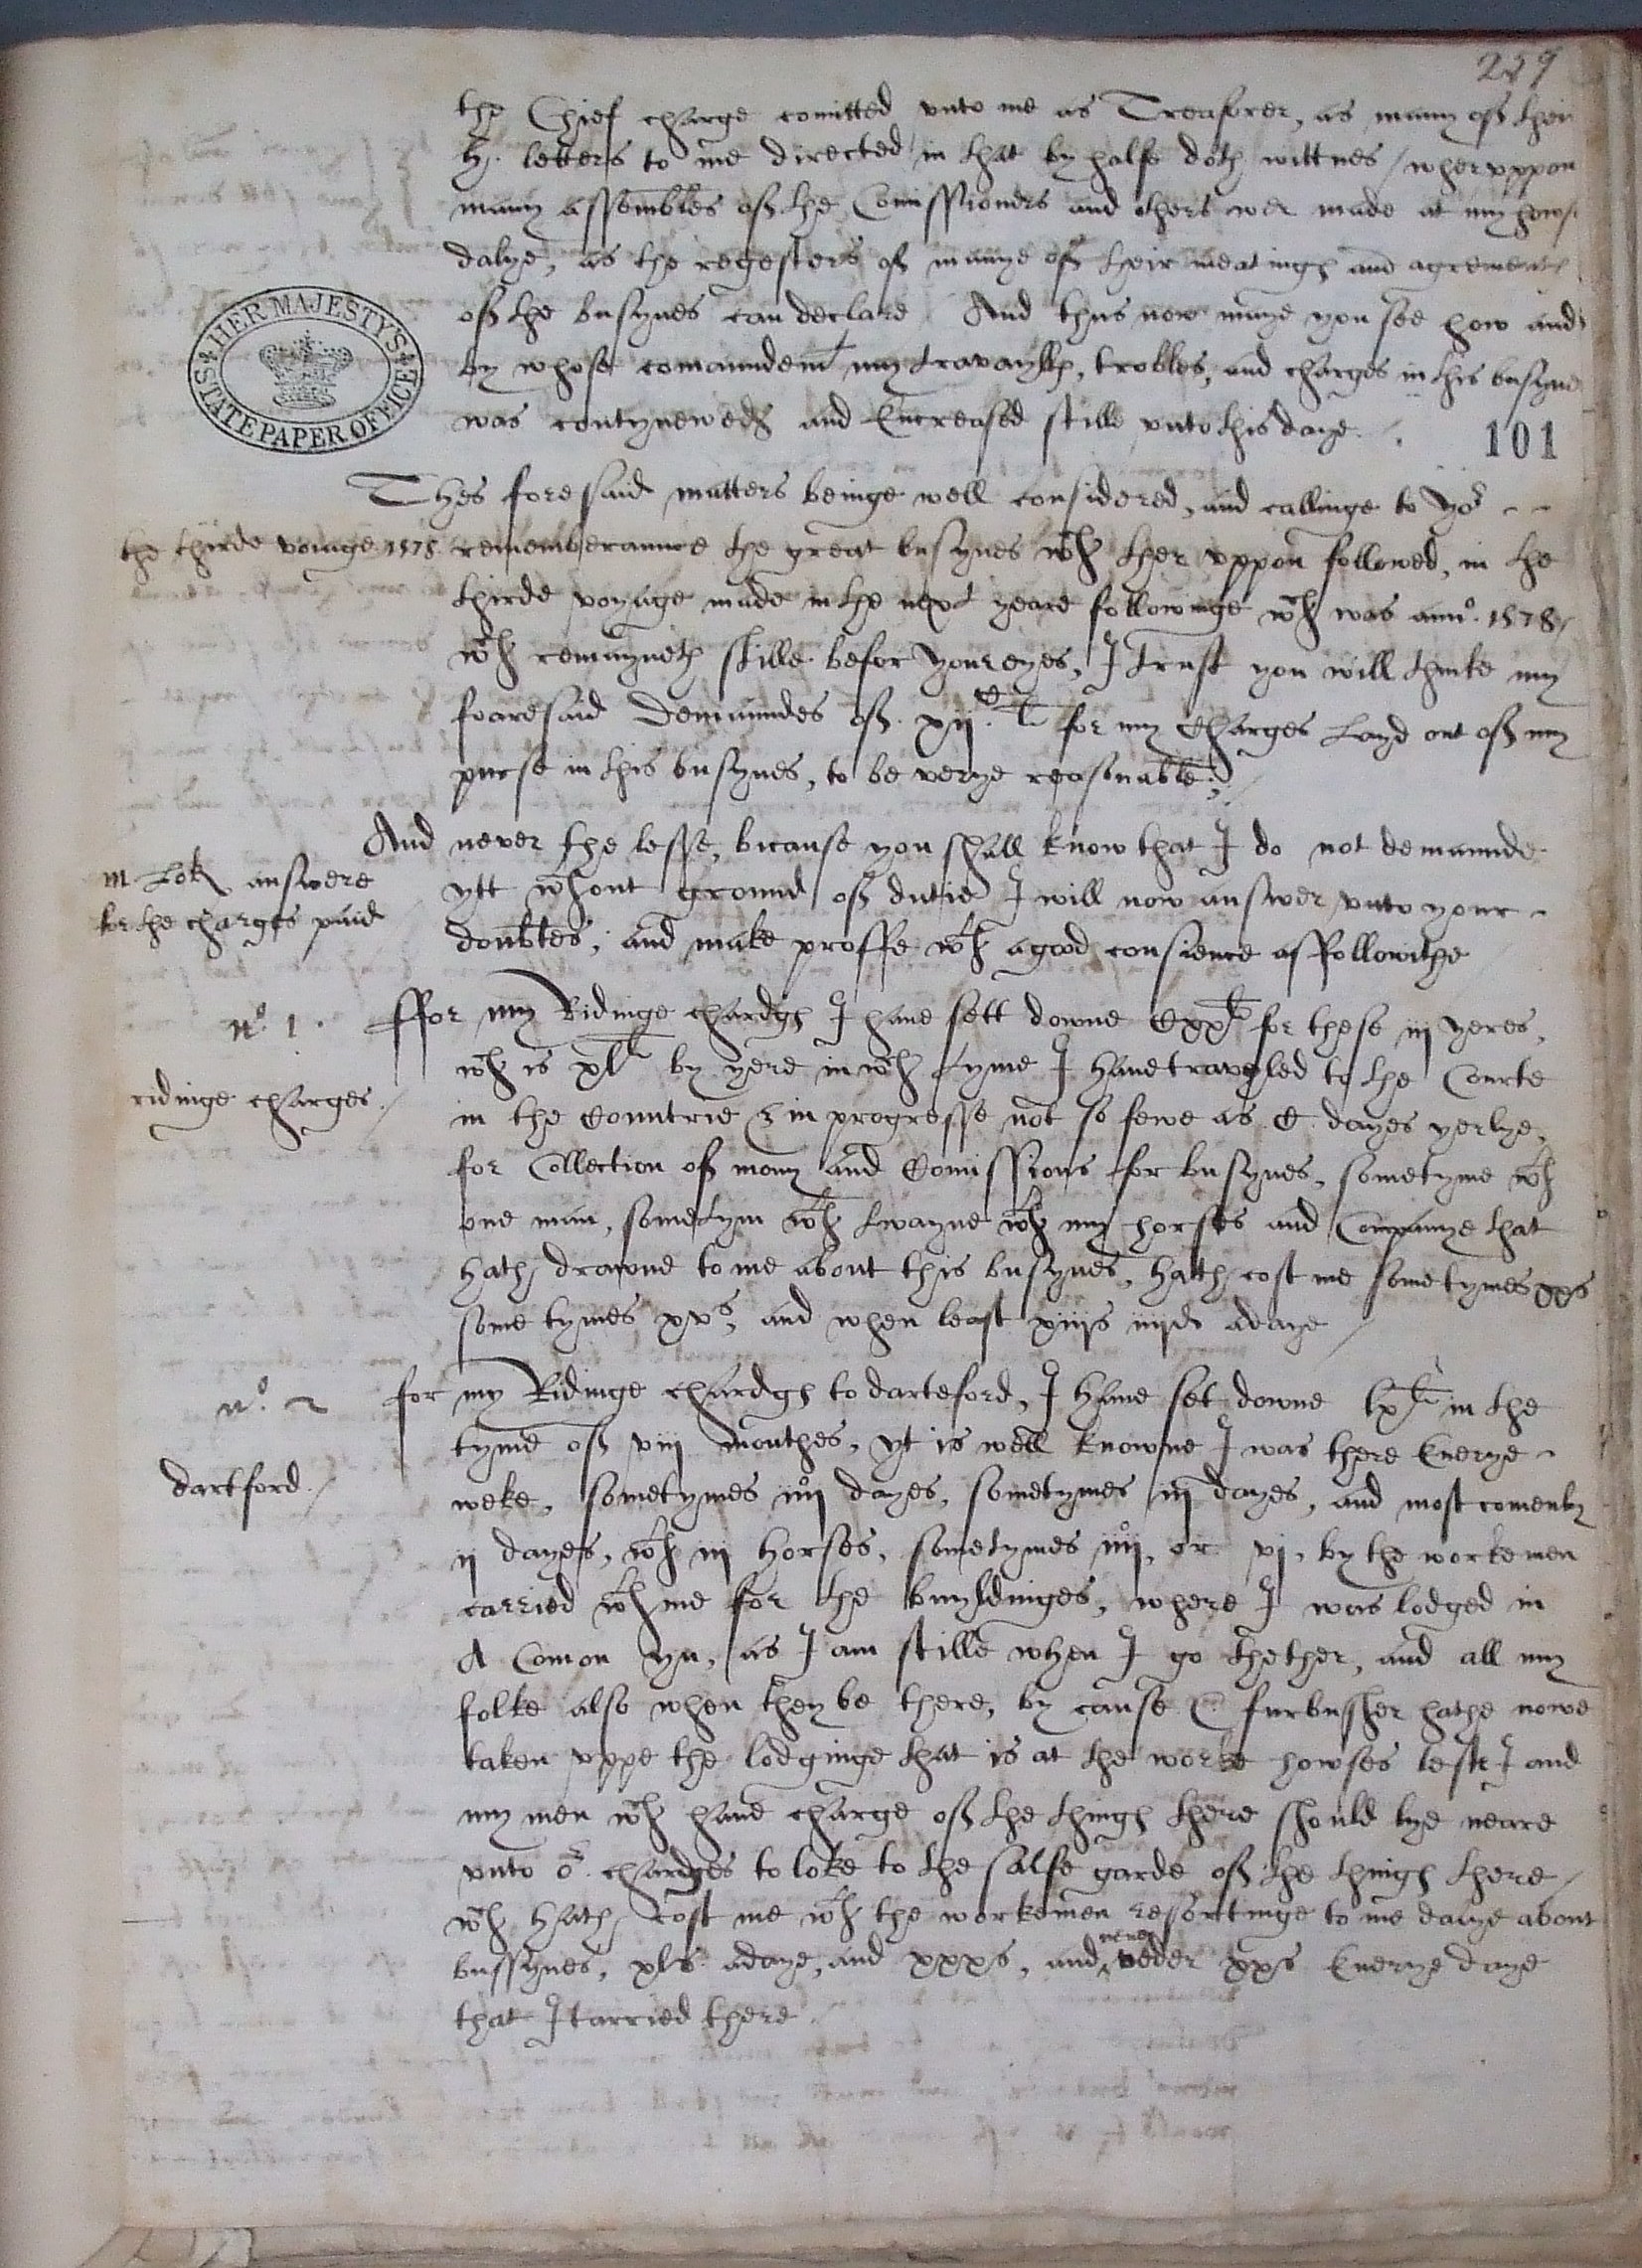 229
the Chief charge comitted vnto me as Treasorer, as many of their
h. letters to me directed in that byhalfe doth wittnes / whervppon
many assembles of the Comissioners and others wer made at my hows
dalye, as the regesters of manye of their meatings and agrements
of the busynes can declare / And thus now maye you see how and
by whose comaundemt my travaylls, trobles, and charges in this busynes
was contynewed and Encreased stille vnto this daye.
101
HER MAJESTY'S STATE PAPER OFFICE
Thes foresaid matters beinge well considered, and callinge to yor
the thirde voiage 1578. rememberaunce the great busynes wch ther vppon followed, in the
thirde voyage made in the next yeare followinge wch was anno. 1578 /
wch remayneth stille befor your eyes, I trust you will thinke my
foaresaid Demaundes of xijC li for my Charges Layd out of my
purse in this busynes, to be verye reasonable:/
And never the lesse, bicause you shall know that I do not demaunde
m Lok answere
ytt wthout ground of dutie I will now answer vnto your
for the charges paid
doubtes, and make proffe wth a good consience as followithe
no. 1. ffor my Ridinge chardgs I have sett downe Cxxli for these iij yeres,
wch is xlli by yere in wch tyme I have traveled to the Courte
ridinge charges./
in the Countrie & in progresse not so fewe as C dayes yerlye,
for Collection of mony and Comissions for busynes, sometyme wth
one man, sometym wth twayne wth my horses and Companye that
hath drawne to me about this busynes, hath cost me sometymes xxxs
some tymes xxs, and when least xiijs iiijd adaye /
no. 2 for my Ridinge chardgs to darteford, I have set downe lxli in the
tyme of viij monthes, yt is well knowne I was there Euerye
dartford./
weke, sometymes iiijo dayes, sometymes iij dayes, and most comenly
ij dayes, wth iij horses, sometymes iiijo, or vj, by the workemen
carried wth me for the buyldinges, where I was lodged in
A Comon yn, as I am stille when I go thether, and all my
folke also when they be there, by cause C. furbussher hathe nowe
taken vppe the lodginge that is at the worke howses lest I and
my men wch have charge of the things there should lye neare
vnto or. chardges to loke to the salfe garde of the things there /
wch hath cost me wth the workemen resortinge to me dalye about
bussynes, xls adaye, and xxxs, and never veder xxs Euerye daye
that I tarried there.